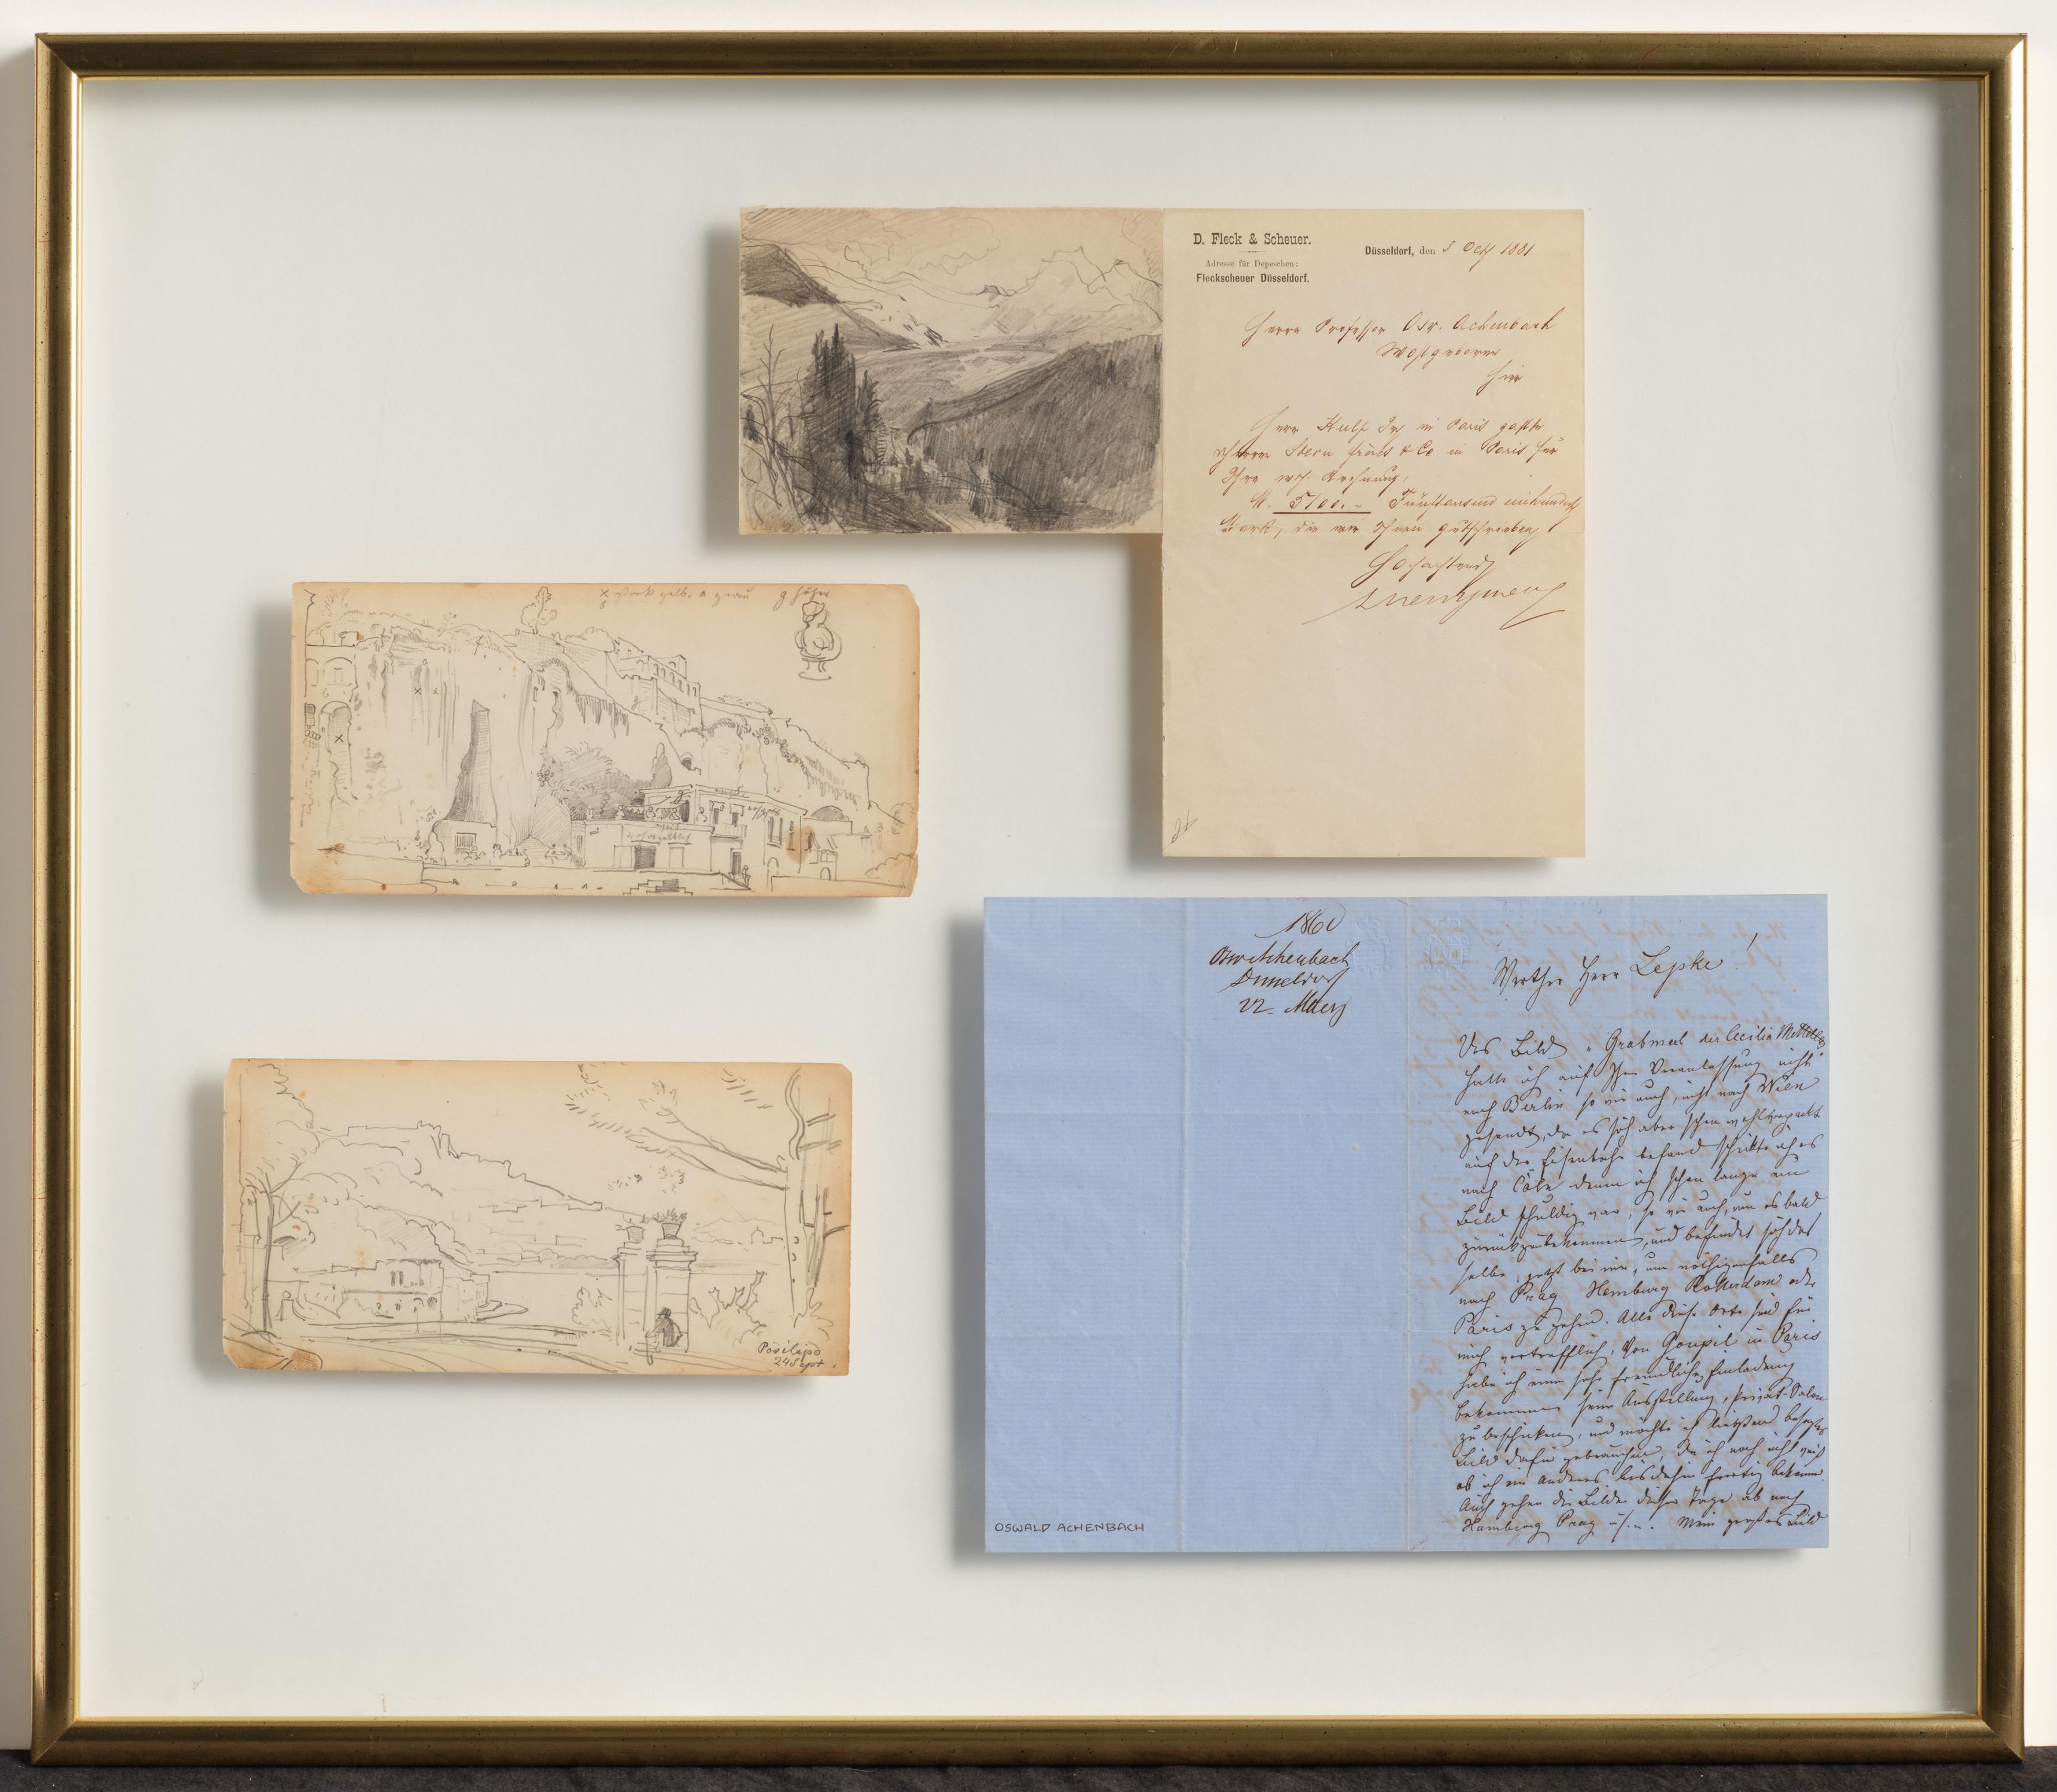 D. Fleck & Scheuer.
Adresse für Depeschen:
Fleckscheuer Düsseldorf.
Düsseldorf, den 5 Oct 1881
Herrn Professor Osw. Achenbach
Wohlgeboren
Hier
Herr in Paris
Herren Stern & Co in Paris für
Ihre Rechnung,
M. 5100.– Fünftausend einhundert
Mark, die wir Ihnen gutschreiben
Hochachtend
x stark gelb. o grau g höher
Posilipo
24 Sept.
1860
Osw Achenbach
Düsseldorf
22. Maerz
Werther Herr Lepke!
Das Bild "Grabmal der Cecilia Metella"
hatte ich auf Ihre Veranlassung nicht
nach Berlin so wie auch nicht nach Wien
gesandt, da es sich aber schon wohlverpackt
auf der Eisenbahn befand schickte ich es
nach Cöln denen ich schon lange ein
Bild schuldig war, so wie auch, um es bald
zurückzubekommen, und befindet sich das
selbe jetzt bei mir, um nöthigenfalls
nach Prag Hamburg Rotterdam oder
Paris zu gehen. Alle diese Orte sind für
mich vortrefflich, Von Goupil in Paris
habe ich eine sehr freundliche Einladung
bekommen seine Ausstellung, Privat-Salon
zu beschicken, und möchte ich besagtes
Bild dafür gebrauchen, da ich noch nicht weiß
ob ich ein anderes bis dahin fertig bekomme.
Auch gehen die Bilder dieser Tage ab nach
Hamburg Prag Mein großes Bild
OSWALD ACHENBACH